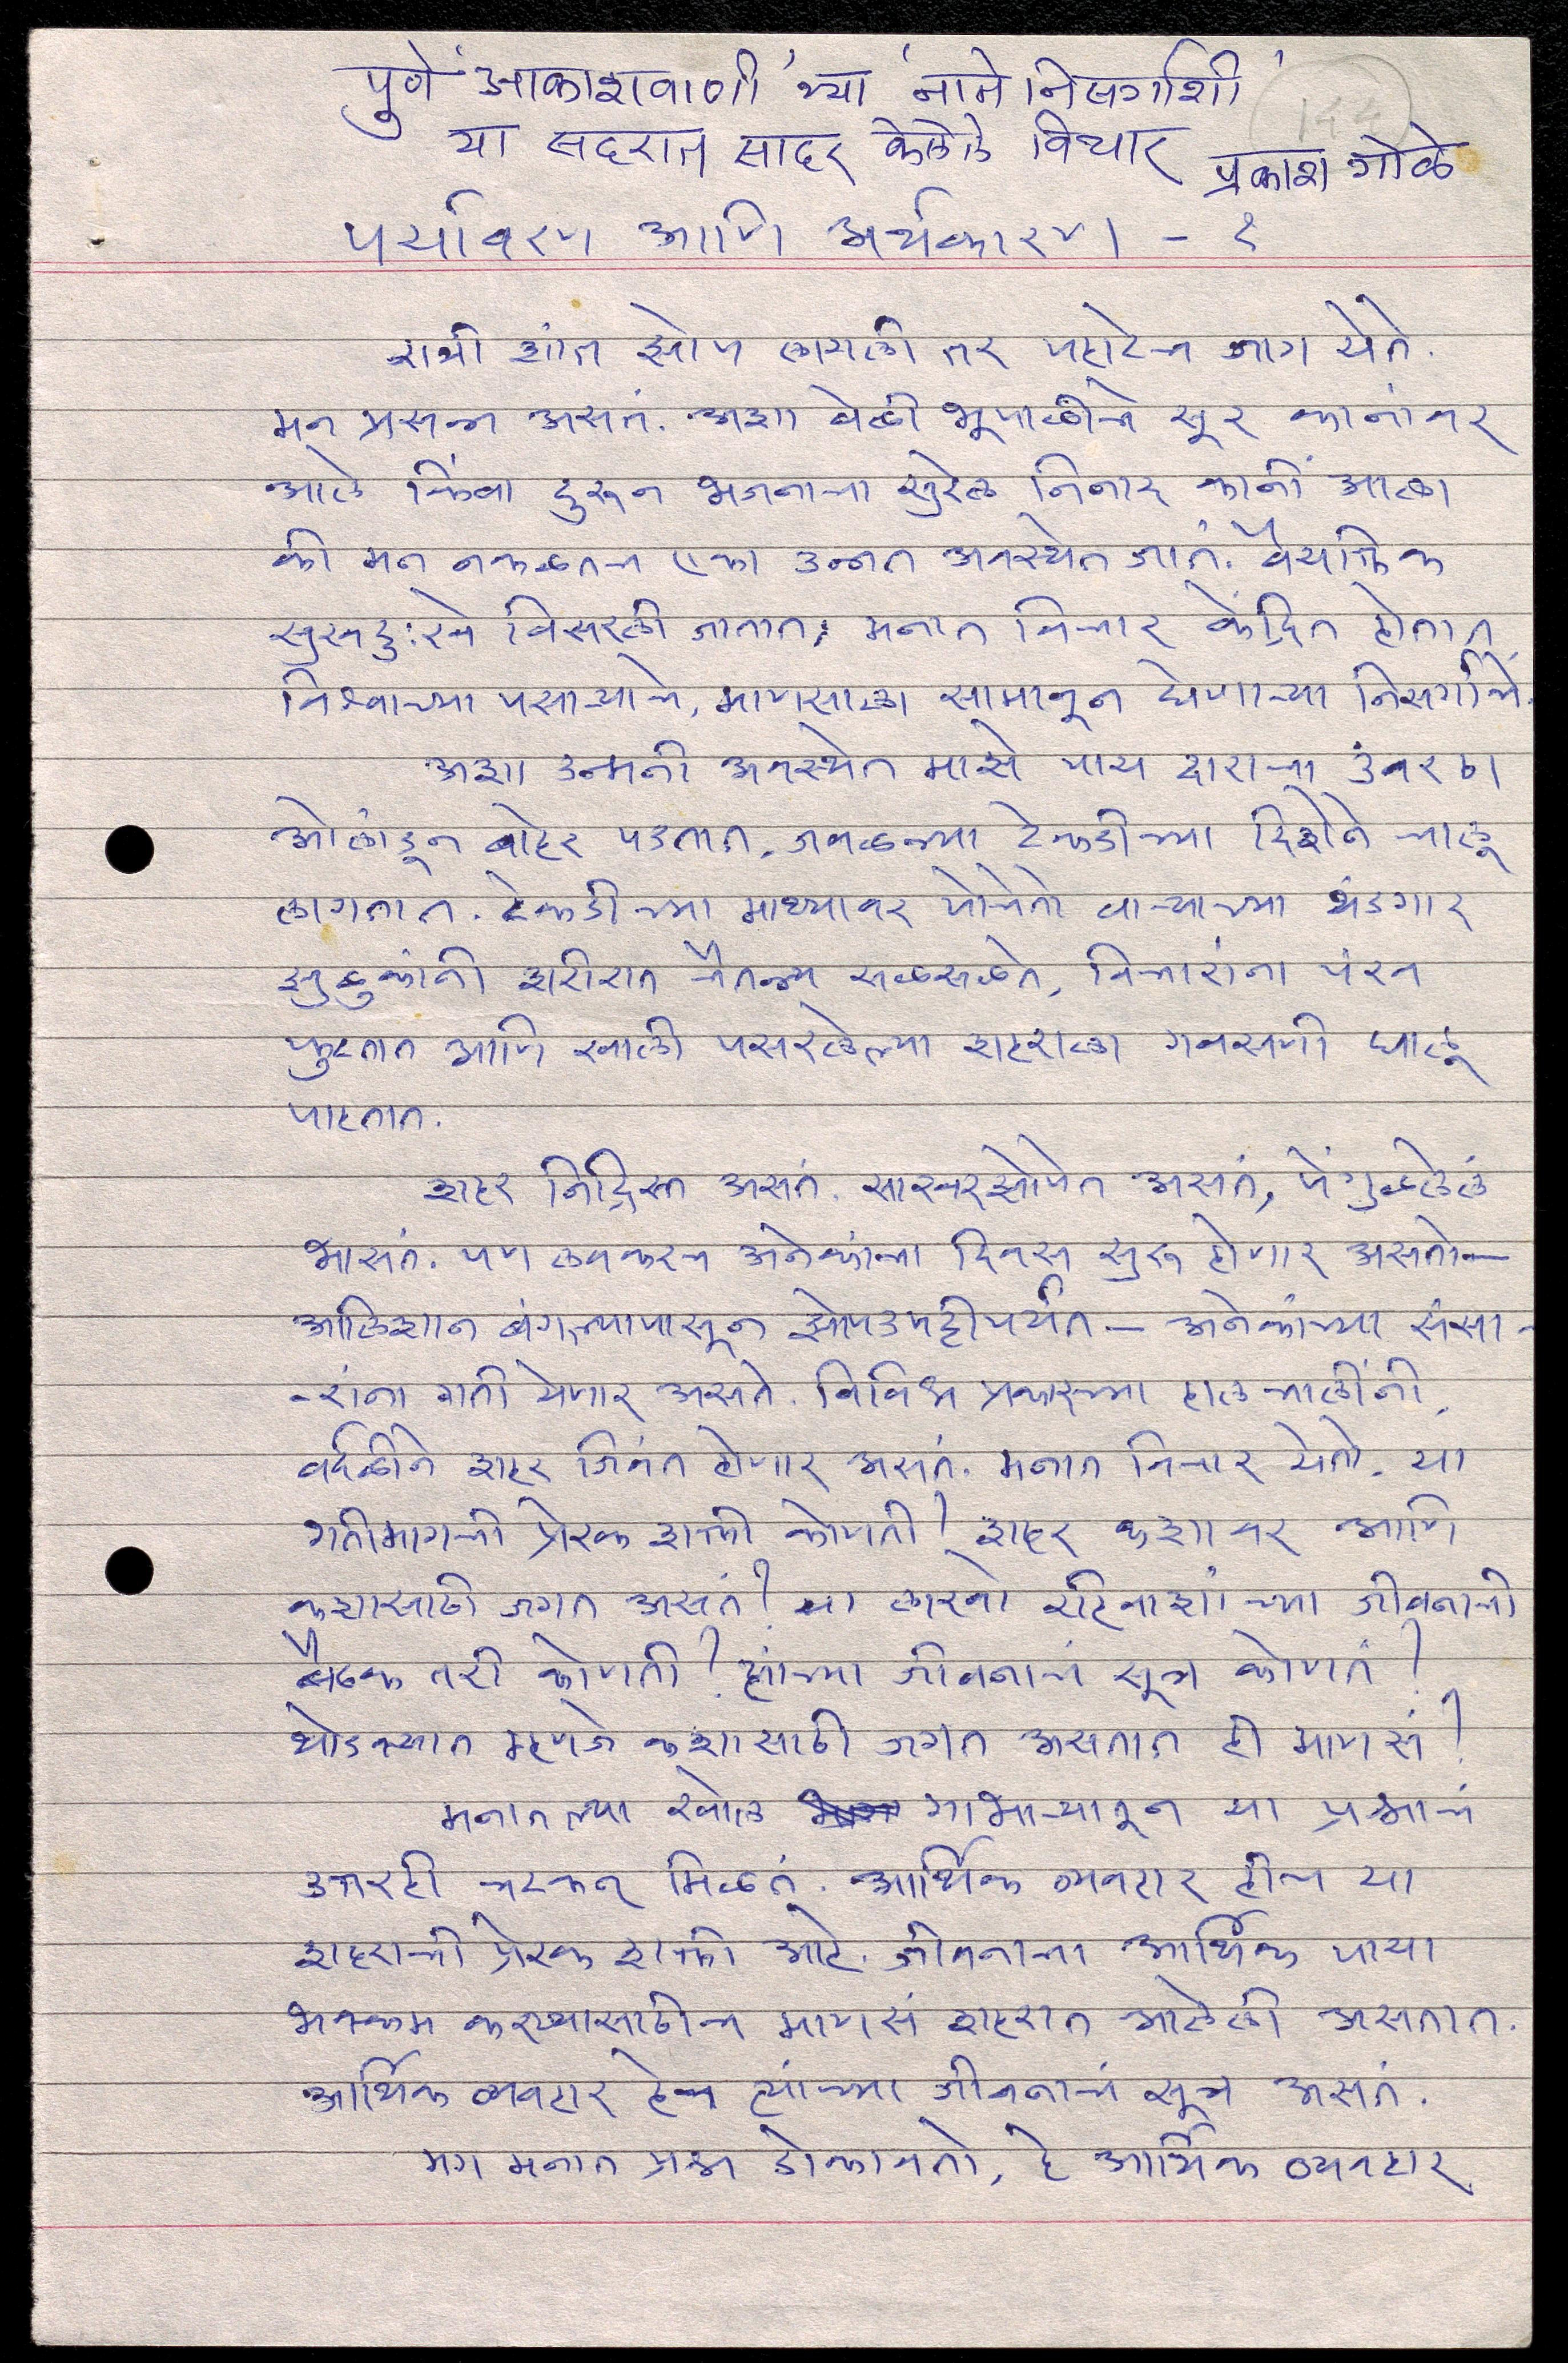 पुणे 'आकाशवाणी'च्या 'नाते निसर्गाशी'
या सदरात सादर केलेले विचार
प्रकाश गोळे
पर्यावरण आणि अर्थकारण - १
रात्री शांत झोप लागली तर पहाटेच जाग येते.
मन प्रसन्न असतं. अशा वेळी भूपाळीचे सूर कानांवर
आले किंवा दुरून भजनाचा सुरेल निनाद कानीं आला
की मन नकळतच एका उन्नत अवस्थेत जातं. वैयक्तिक
सुखदुःखे विसरली जातात, मनात विचार केंद्रित होतात
विश्वाच्या पसाऱ्याचे, माणसाला सामावून घेणाऱ्या निसर्गाचे.
अशा उन्मनी अवस्थेत माझे पाय दाराचा उंबरठा
ओलांडून बाहेर पडतात. जवळच्या टेकडीच्या दिशेने चालू
लागतात. टेकडीच्या माथ्यावर पोचेतो वाऱ्याच्या थंडगार
झुळुकांनी शरीरात चैतन्य सळसळते, विचारांना पंख
फुटतात आणि खाली पसरलेल्या शहराला गवसणी घालू
पाहतात.
शहर निद्रिस्त असतं. साखरझोपेत असतं, पेंगुळलेलं
भासतं. पण लवकरच अनेकांचा दिवस सुरू होणार असतो—
आलिशान बंगल्यापासून झोपडपट्टीपर्यंत — अनेकांच्या संसा-
-रांना गती येणार असते. विविध प्रकारच्या हालचालींनी,
वर्दळीने शहर जिवंत होणार असतं. मनात विचार येतो, या
गतीमागची प्रेरक शक्ती कोणती? शहर कशावर आणि
कशासाठी जगत असतं? या लाखो रहिवाशांच्या जीवनाची
बैठक तरी कोणती? ह्यांच्या जीवनाचं सूत्र कोणतं?
थोडक्यात म्हणजे कशासाठी जगत असतात ही माणसं?
मनातल्या खोल गाभाऱ्यातून या प्रश्नाचं
उत्तरही चटकन् मिळतं. आर्थिक व्यवहार हीच या
शहराची प्रेरक शक्ती आहे. जीवनाचा आर्थिक पाया
भक्कम करण्यासाठीच माणसं शहरात आलेली असतात.
आर्थिक व्यवहार हेच त्यांच्या जीवनाचं सूत्र असतं.
मग मनात प्रश्न डोकावतो, हे आर्थिक व्यवहार